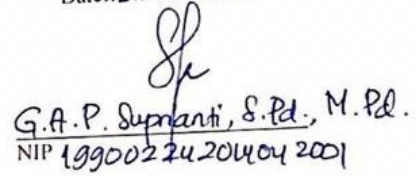 G.A.P. Suprianti, S.Pd., M.Pd.
NIP 199002242014042001